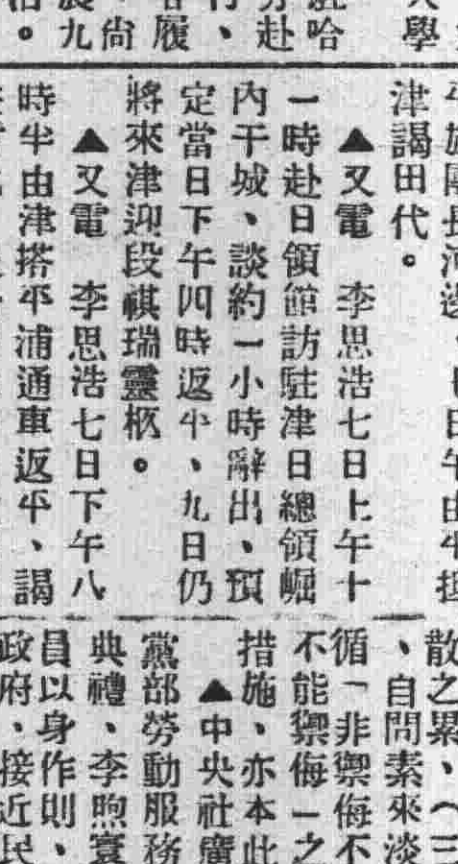 大學
駐哈
赴
行、
履
尚
九
沿。
津謁田代。
▲又電　李思浩七日上午十
一時赴日領館訪駐津日總領崛
內干城、談約一小時辭出、預
定當日下午四時返平、九日仍
將來津迎段祺瑞靈柩。
▲又電　李思浩七日下午八
時半由津搭平浦通車返平、謁
散之累、（三
、自問素來淡
循「非禦侮不
不能禦侮」之
措施、亦本此
▲中央社廣
黨部勞動服務
典禮、李煦寰
員以身作則、
政府、接近民